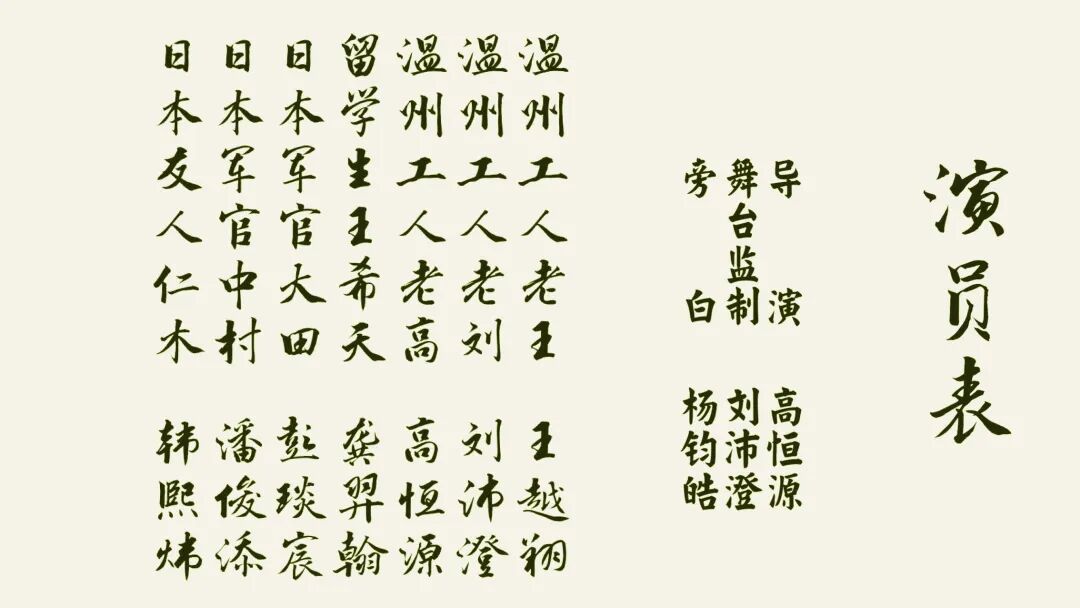 演员表
导演 高恒源
舞台监制 刘沛澄
旁白 杨钧皓
温州工人老王 王越翔
温州工人老刘 刘沛澄
温州工人老高 高恒源
留学生王希天 龚羿翰
日本军官大田 彭琰宸
日本军官中村 潘俊添
日本友人仁木 韩熙炜